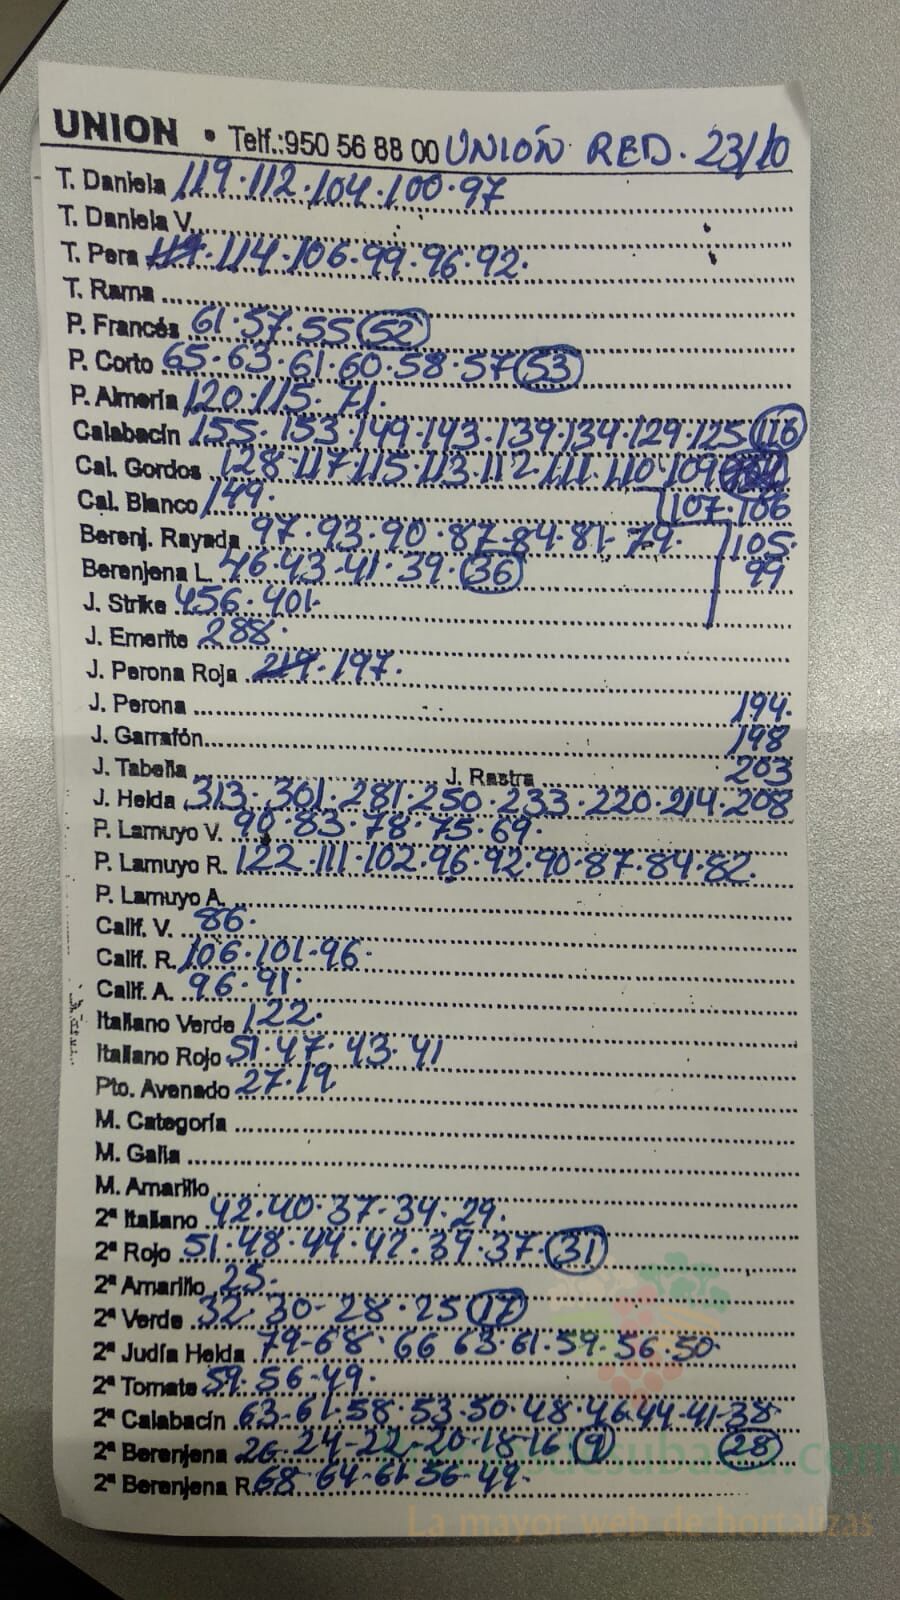 UNION • Telf.:950 56 88 00 UNIÓN RED. 23/10
T. Daniela 119·112·104·100·97
T. Daniela V.
T. Pera 117·114·106·99·96·92.
T. Rama
P. Francés 61·57·55 52
P. Corto 65·63·61·60·58·57 53
P. Almería 120·115·71.
Calabacín 155·153·149·143·139·134·129·125 116
Cal. Gordos 128·117·115·113·112·111·110·109
Cal. Blanco 149. 107·106
Berenj. Rayada 97·93·90·87·84·81·79. 105.
Berenjena L. 46·43·41·39·36 99
J. Strike 456·401.
J. Emerite 288.
J. Perona Roja 219·197.
J. Perona 194.
J. Garrafón 198
J. Tabella J. Rastra 203
J. Helda 313·301·281·250·233·220·214·208
P. Lamuyo V. 90·83·78·75·69.
P. Lamuyo R. 122·111·102·96·92·90·87·84·82.
P. Lamuyo A.
Calif. V. 86.
Calif. R. 106·101·96.
Calif. A. 96·91.
Italiano Verde 122.
Italiano Rojo 51·47·43·41
Pto. Avenado 27·19
M. Categoría
M. Galia
M. Amarillo
2ª Italiano 42·40·37·34·29.
2ª Rojo 51·48·44·42·39·37·31
2ª Amarillo 25.
2ª Verde 32·30-28·25 17
2ª Judía Helda 79-68·66 63·61·59·56·50.
2ª Tomate 59·56-49.
2ª Calabacín 63-61·58·53·50·48·46·44-41-38
2ª Berenjena 26-24-22-20·18-16 9 28
2ª Berenjena R. 68·64-61·56-49.
La mayor web de hortalizas